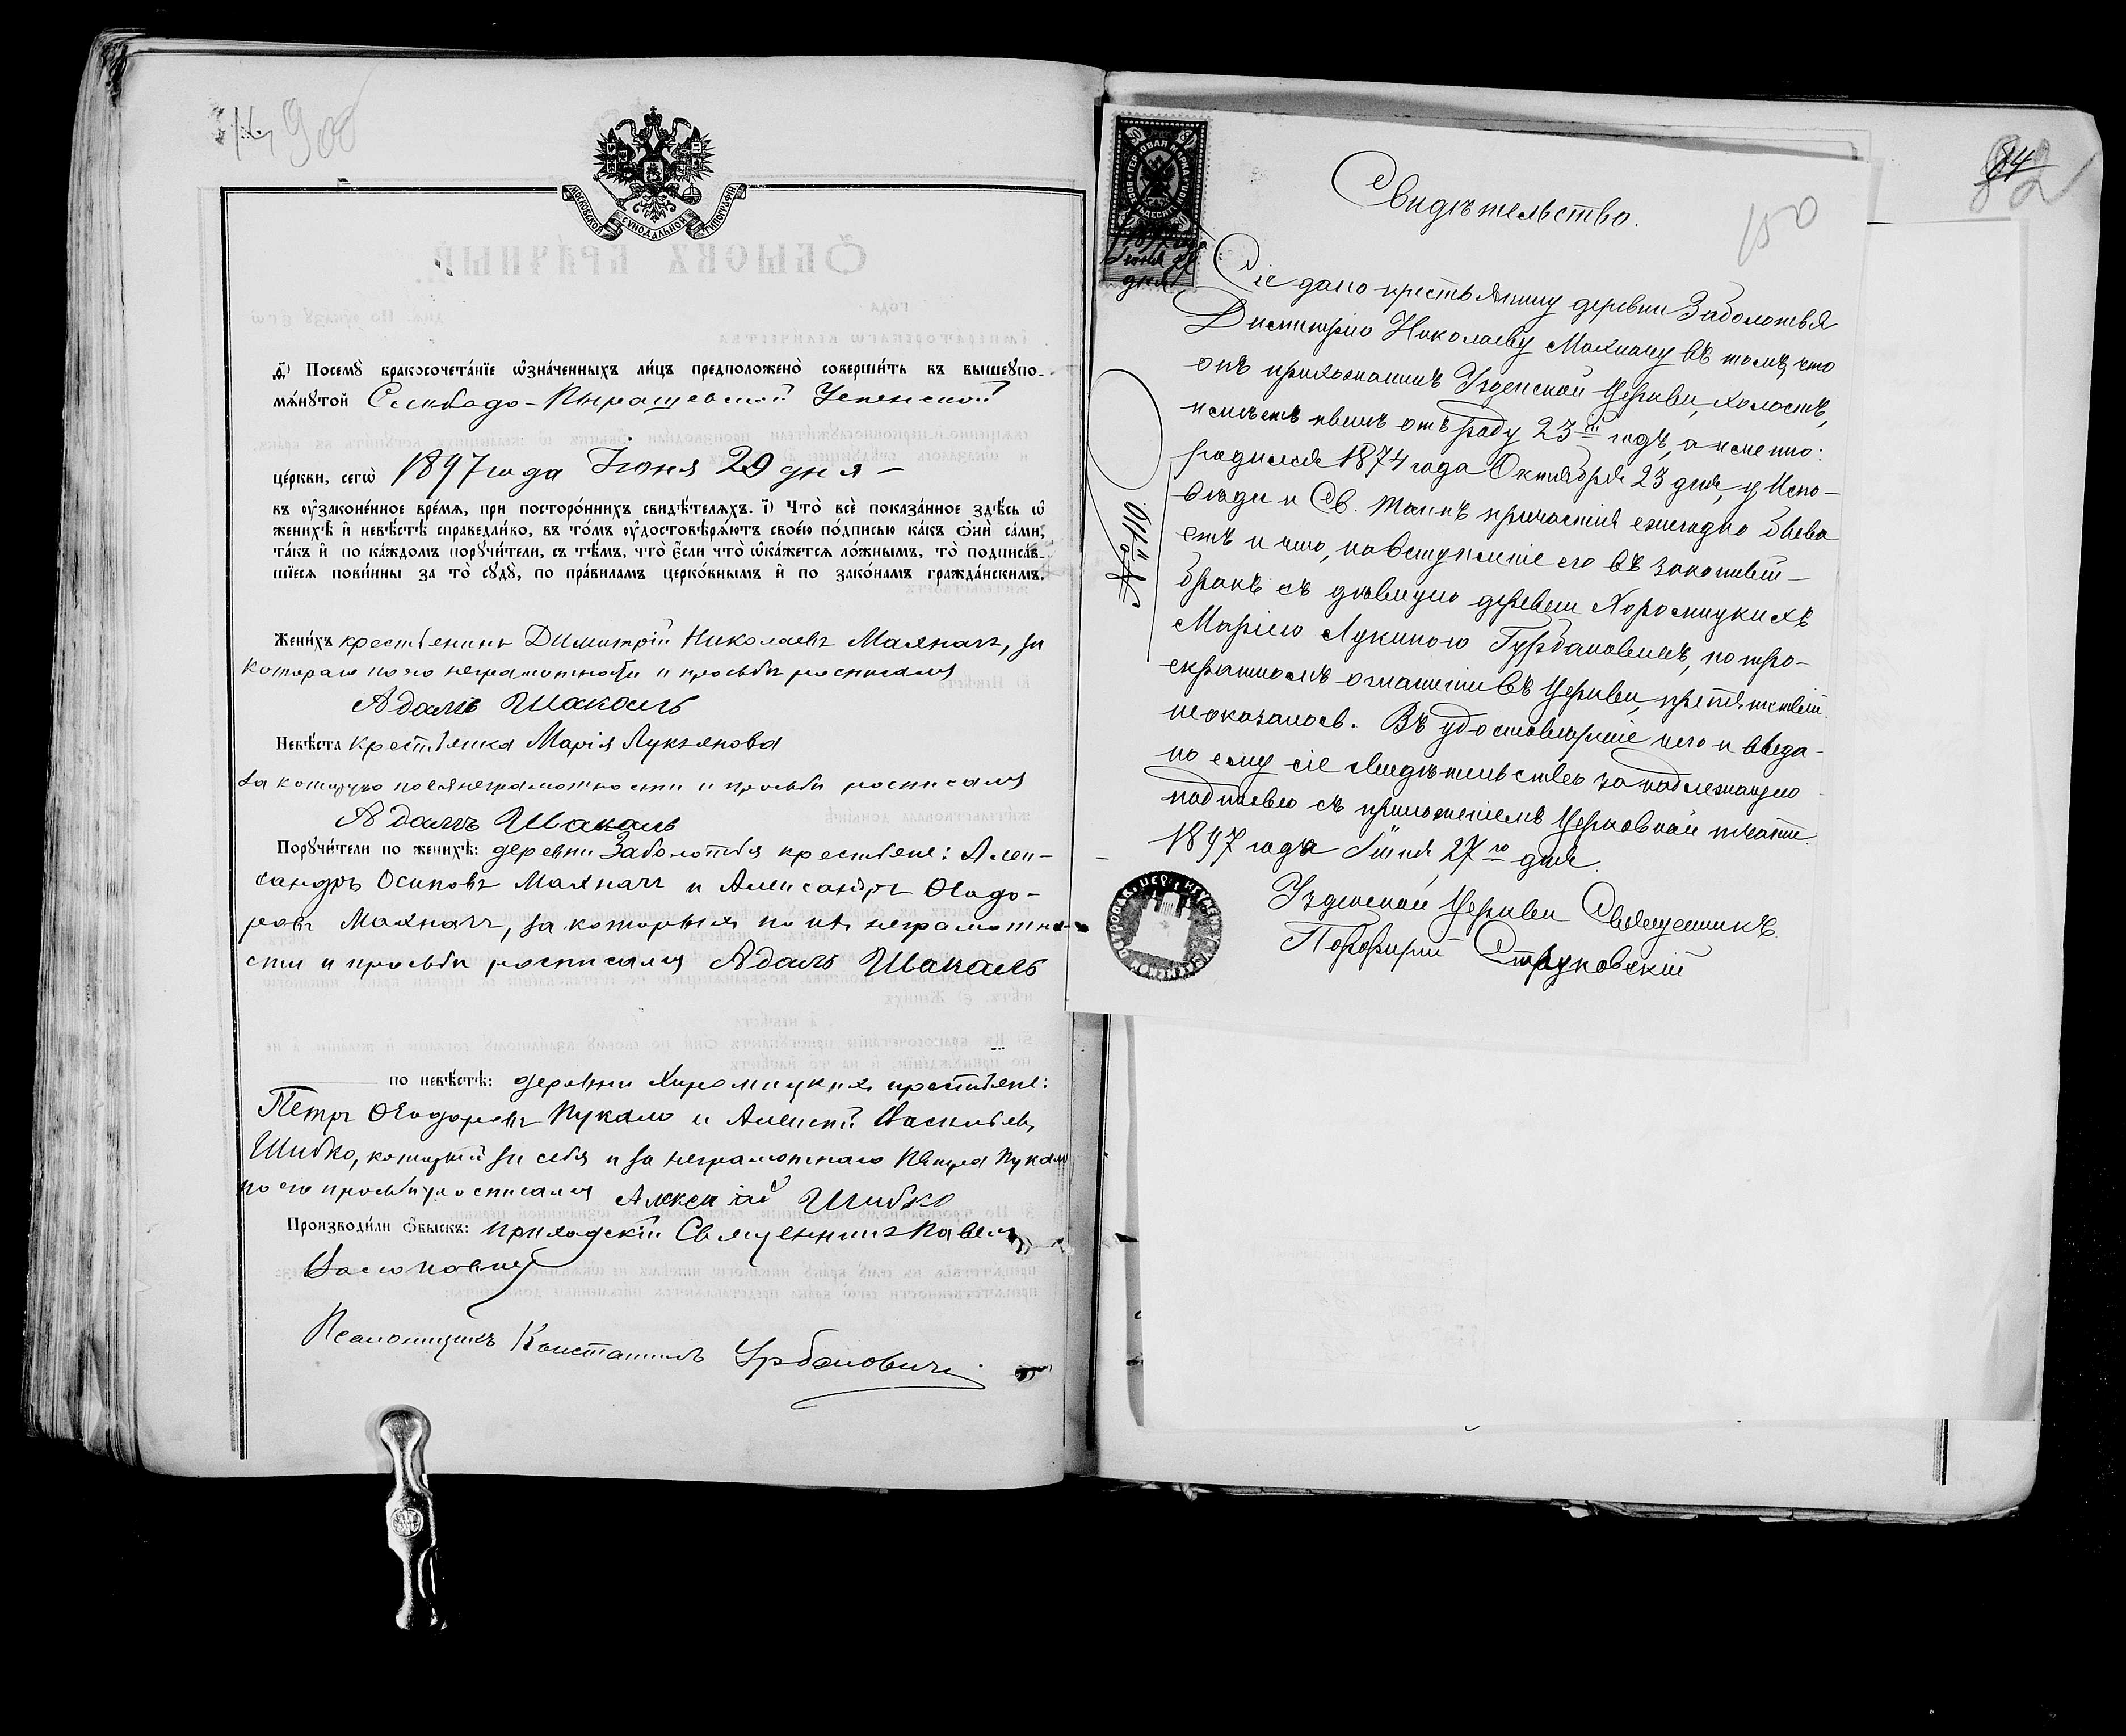 900
МОСКОВСКОЙ СѴНОДАЛЬНОЙ ТИПОГРАФІИ
д҃) Посемꙋ̀ бракосочета́нїе ѡ҆зна́ченныхъ ли́цъ предположено̀ соверши́ть въ вышеꙋпо-
мѧ́нꙋтой Слободо-Пырашевской Успенской
це́ркви, сегѡ̀ 1897 года Іюня 29 дня –
въ ᲂу҆законе́нное вре́мѧ, при посторо́ннихъ свидѣ́телѧхъ. і҃) Что̀ всѐ показа́нное здѣ́сь ѡ҆
женихѣ̀ и҆ невѣ́стѣ справедли́во, въ то́мъ ᲂу҆достовѣрѧ́ютъ своє́ю по́дписью ка́къ ѻ҆нѝ са́ми,
та́къ и҆ по ка́ждомъ порꙋчи́тели, съ тѣ́мъ, что̀ є҆́сли что̀ ѡ҆ка́жетсѧ ло́жнымъ, то̀ подписа́в-
шїесѧ пови́нны за то̀ сꙋдꙋ̀, по пра́виламъ церко́внымъ и҆ по зако́намъ гражда́нскимъ.
Жени́хъ крестьянинъ Димитрій Николаевъ Махначъ, за
котораго по его неграмотности и просьбѣ росписался
Адамъ Шакаль
Невѣ́ста крестьянка Марія Лукьянова
за которую по ея неграмотности и просьбѣ росписался
Адамъ Шакаль
Порꙋчи́тели по женихѣ̀: деревни Заболотья крестьяне: Алек-
сандръ Осиповъ Махначъ и Александръ Ѳеодо-
ровъ Махначъ, за которыхъ по ихъ неграмотно-
сти и просьбѣ росписался Адамъ Шакаль
по невѣ́стѣ: деревни Хоромицкихъ крестьяне:
Петръ Ѳеодоровъ Пукало и Алексѣй Васильевъ
Шибко, который за себя и за неграмотнаго Петра Пукало
по его просьбѣ росписался Алексѣй Шибко
Производи́ли ѻ҆́быскъ: приходскій Священникъ Павелъ
Псаломщикъ Константинъ Урбановичъ
84
82
ГЕРБОВАЯ МАРКА
1897 года
Іюня 27
дня
Свидѣтельство.
150
Сіе дано крестьянину деревни Заболотья
Димитрію Николаеву Махначу въ томъ, что
онъ прихожанинъ Узденской Церкви, холостъ,
имѣетъ нынѣ отъ роду 23-й годъ, а именно:
родился 1874 года Октября 23 дня, у Испо-
вѣди и Св. Таинъ причастія ежегодно быва
етъ и что, на вступленіе его въ законный –
бракъ съ дѣвицею деревни Хоромицкихъ
Маріею Лукиною Гурбановичъ, по тро-
екратномъ оглашеніи въ Церкви, препятствій
не оказалось. Въ удостовѣреніе чего и выда-
но ему сіе свидѣтельство за надлежащею
подписью съ приложеніемъ Церковной печати.
1897 года Іюня 27 го дня.
Узденской Церкви Священникъ
Порфирій Струковскій
№ 110